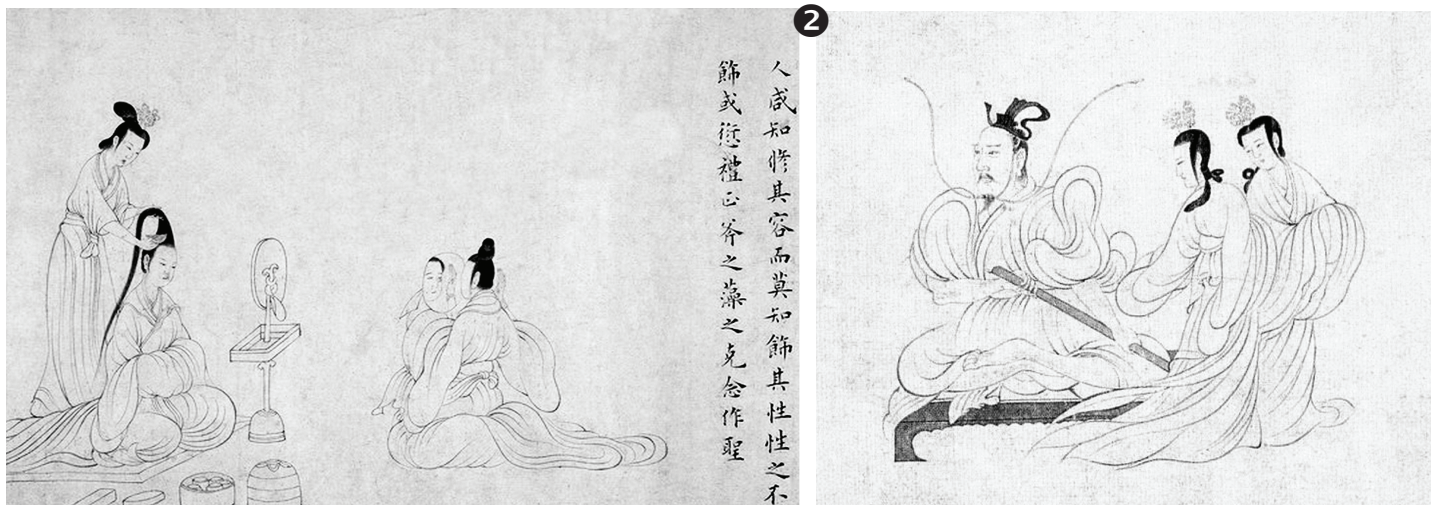 人咸知修其容而莫知飾其性性之不
飾或愆禮正斧之藻之克念作聖
2